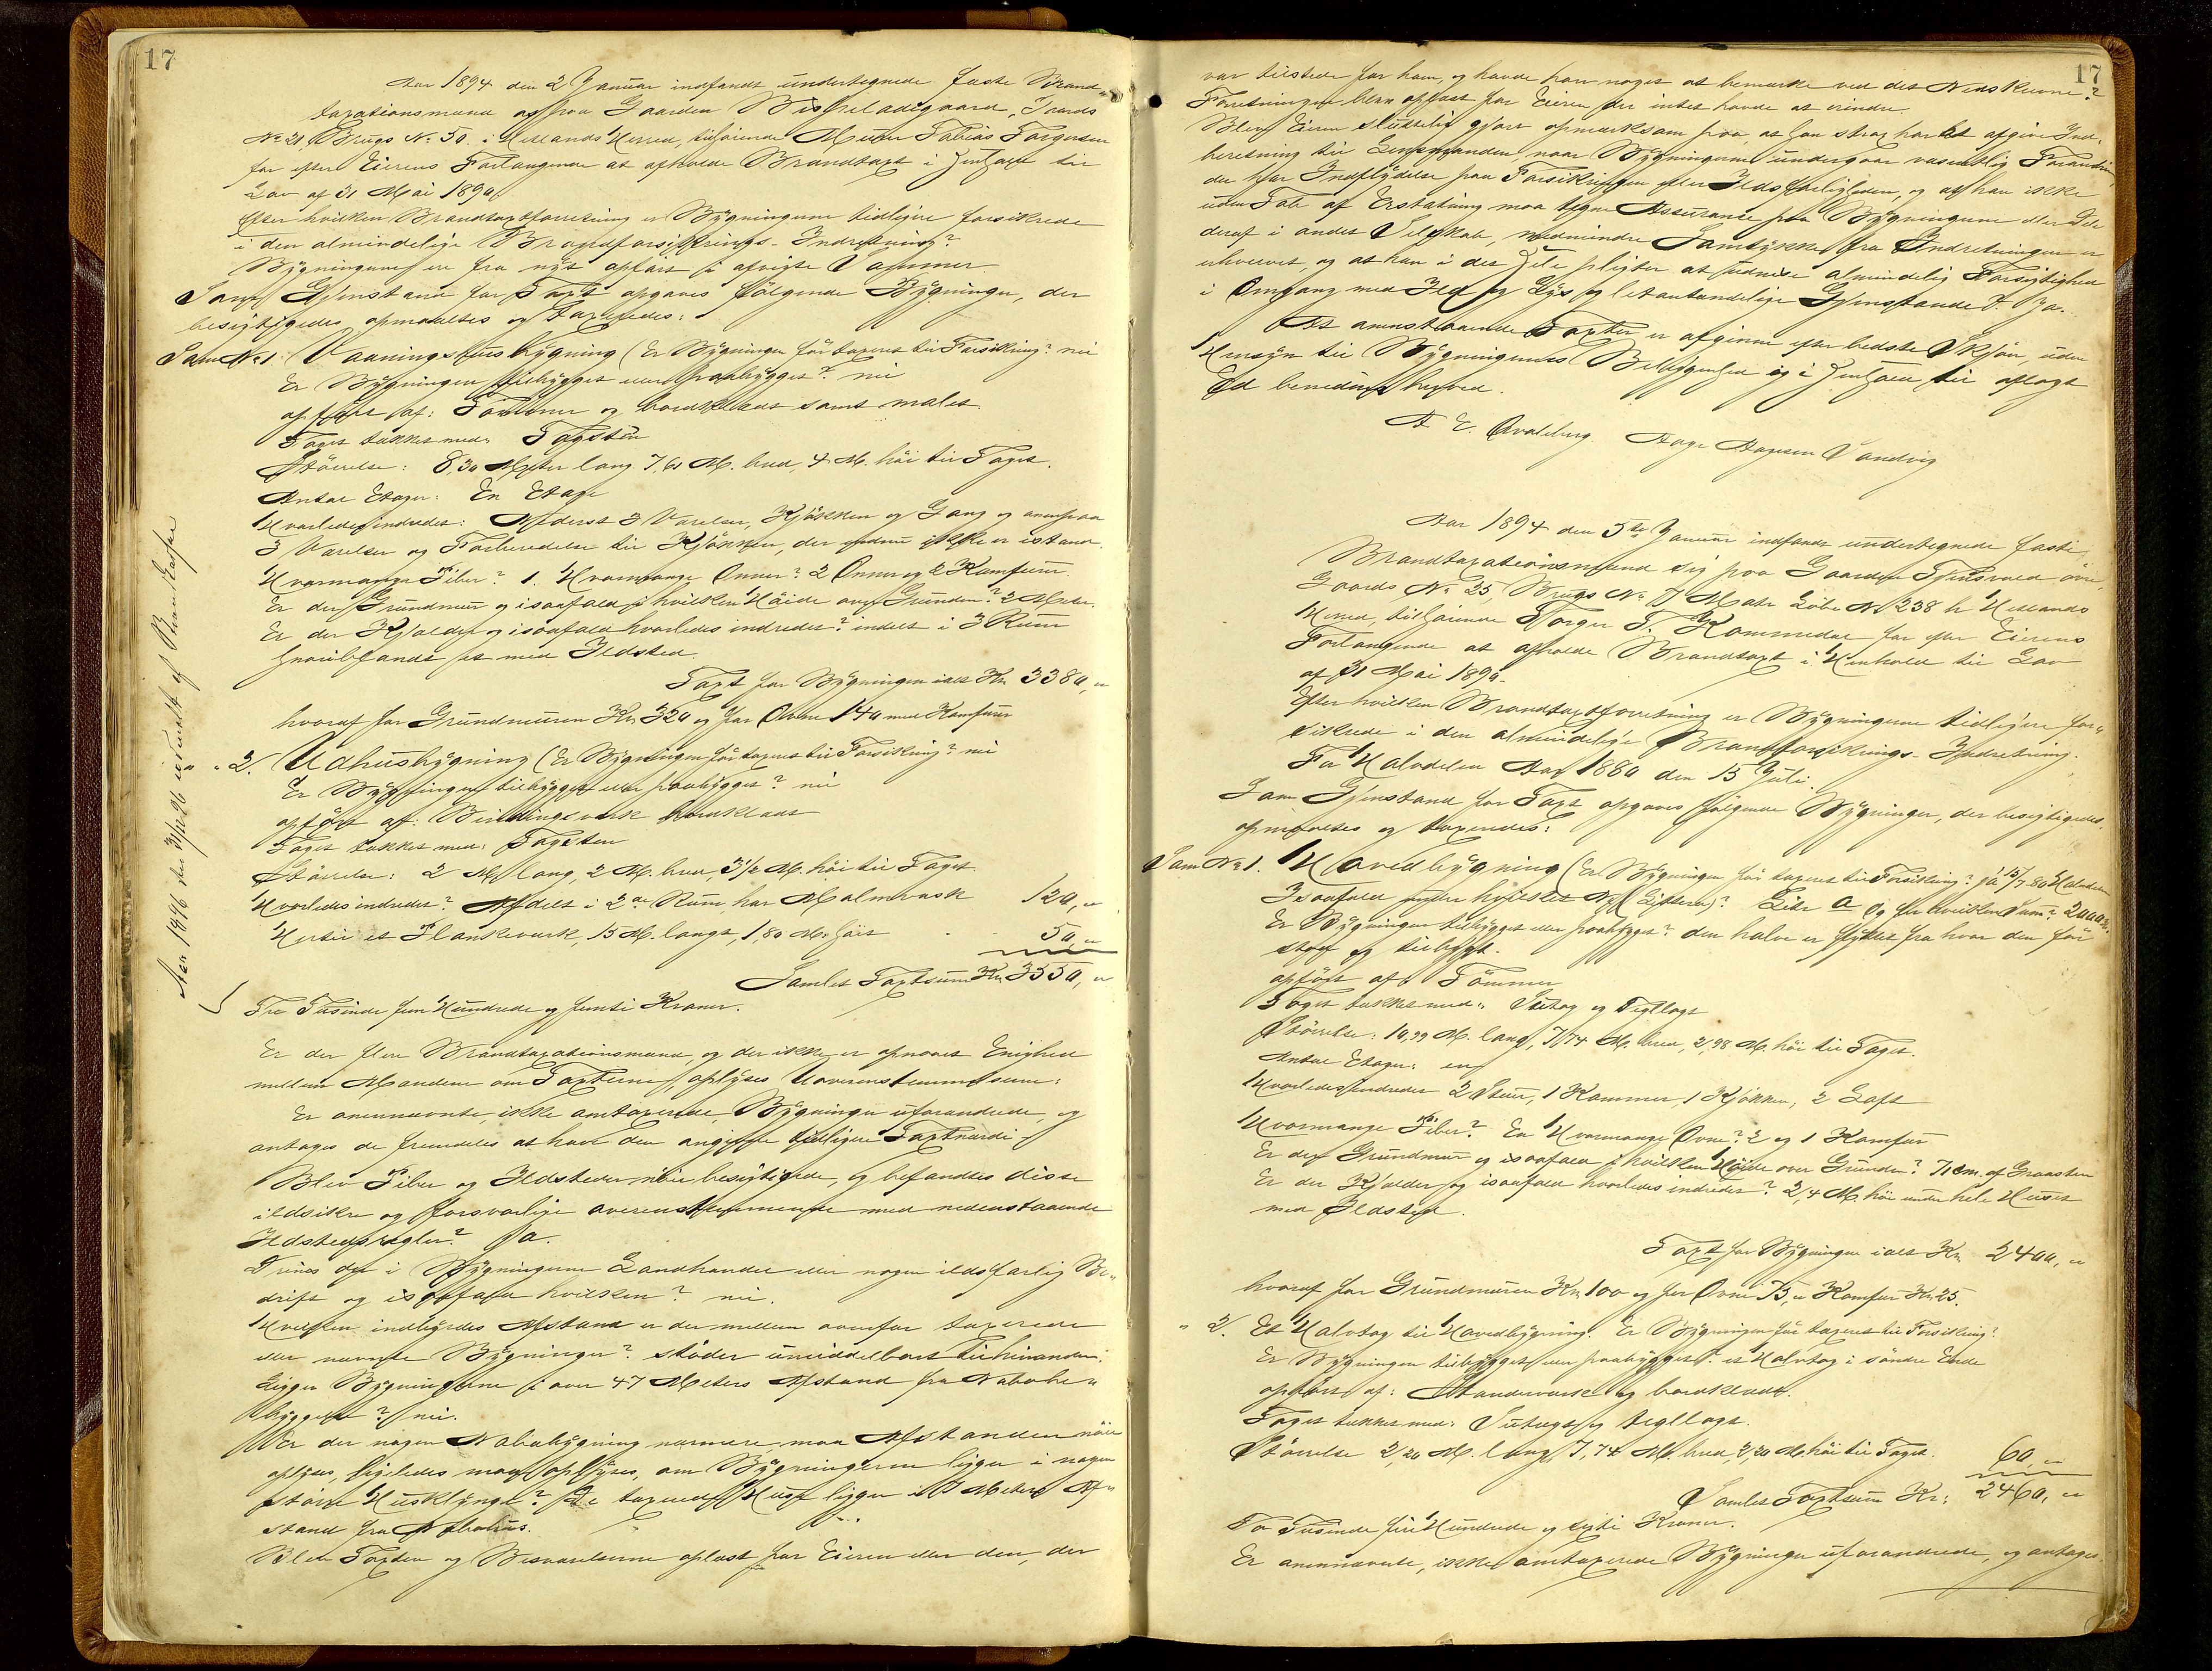 17
Aar 1894 den 2 Januar indfandt undertegnede faste Brand-
taxationsmænd os paa Gaarden Bispeladegaard, Gaards
No 21, Brugs No 50 i Hetlands Herred, tilhørende Murer Tobias Torgersen
for efter Eierens Forlangende at afholde Brandtaxt i Henhold til
Lov af 31 Mai 1890
Efter hvilken Brandtaxtforretning er Bygningerne tidligere forsikrede
i den almindelige Brandforsikrings-Indretning?
Bygningerne er fra nyt opført i afvigte Sommer
Som Gjenstand for Taxt opgaves følgende Bygninger, der
besigtigedes, opmaaltes og taxeredes:
Som No 1. Vaaningshusbygning (Er Bygningen før taxeret til Forsikring? nei
Er Bygningen tilbygget eller paabygget? nei
opført af: Tømmer og bordklædt samt malet
Taget tækket med: Tagsten
Størrelse: 8,30 Meter lang 7,61 M. bred, 4 M. høi til Taget.
Antal Etager: En Etage
Hvorledes indredet: Nederst 3 Værelser, Kjøkken og Gang og ovenpaa
3 Værelser og Forberedelse til Kjøkken, der endnu ikke er istand.
Hvormange Piber? 1. Hvormange Ovner? 2 Ovner og 2 Komfurer
Er der Grundmur og isaafald i hvilken Høide over Grunden? 2 Meter.
Er der Kjælder og isaafald hvorledes indredet? indelt i 3 Rum
hvoriblandt et med Ildsted.
Taxt for Bygningen ialt Kr. 3380, "
hvoraf for Grundmuren Kr. 320 og for Ovne 140 med Komfurer
" " 2. Udhusbygning (Er Bygningen før taxeret til Forsikring? nei
Er Bygningen tilbygget eller paabygget? nei
opført af: Bindingsværk bordklædt
Taget tækket med: Tagsten
Størrelse: 2 M. lang, 2 M. bred, 3 1/2 M. høi til Taget
Hvorledes indredet? Afdelt i 2de Rum, har Malmvask 120, "
Hertil et Plankeværk, 15 M. langt, 1,80 M. høit 50, "
Samlet Taxtsum Kr. 3550, "
Tre Tusinde fem Hundrede og femti Kroner.
Er der flere Brandtaxationsmænd, og der ikke er opnaaet Enighed
mellem Mændene om Taxterne, oplyses Uoverensstemmelserne:
Er ovennævnte, ikke omtaxerede, Bygninger uforandrede, og
antages de fremdeles at have den angivne tidligere Taxtværdi?
Blev Piber og Ildsteder nøie besigtigede, og befandtes disse
ildsikre og forsvarlige overensstemmende med nedenstaaende
Ildstedsregler? Ja.
Drives der i Bygningerne Landhandel eller nogen ildsfarlig Be-
drift og isaafald hvilken? nei.
Hvilken indbyrdes Afstand er der mellem ovenfor taxerede
eller nævnte Bygninger? støder umiddelbart til hinanden.
Ligger Bygningerne i over 47 Meters Afstand fra Nabobe-
byggelse? nei.
Er der nogen Nabobygning nærmere, maa Afstanden nøie
oplyses, ligeledes maa oplyses, om Bygningerne ligger i nogen
større Husklynge? De taxerede Huse ligger i Meters Af-
stand fra Nabohus.
Blev Taxten og Besvarelserne oplæst for Eieren eller den, der
Aar 1896 den 31/12 96 udmeldt af Brandkasse
17
var tilstede for ham, og havde han noget at bemærke ved det Nedskrevne?
Forretningen blev oplæst for Eieren der intet havde at erindre.
Blev Eieren sluttelig gjort opmærksom paa, at han strax har at afgive Ind-
beretning til Lensmanden, naar Bygningerne undergaar væsentlig Forandring,
der har Indflydelse paa Forsikringen eller Ildsfarligheden, og at han ikke
uden Tab af Erstatning maa tegne Assurance paa Bygningerne eller Dele
deraf i andet Selskab, medmindre Samtykke fra Indretningen er
erhvervet, og at han i det Hele pligter at udvise almindelig Forsigtighed
i Omgang med Ild og Lys og letantændelige Gjenstande? Ja.
At ovenstaaende Taxter er afgivne efter bedste Skjøn, uden
Hensyn til Bygningernes Beliggenhed og i Henhold til aflagt
Ed bevidnes herved.
A E. Qvaleberg Aage Aagesen Vandvig
Aar 1894 den 5te Januar indfandt undertegnede faste
Brandtaxationsmænd sig paa Gaarden Tjensvold øvre,
Gaards No 25, Brugs No 7 Matr Løbe No 238 b Hetlands
Herred, tilhørende Torger T. Kommedal for efter Eierens
Forlangende at afholde Brandtaxt i Henhold til Lov
af 31 Mai 1890.
Efter hvilken Brandtaxtforretning er Bygningerne tidligere for-
sikrede i den almindelige Brandforsikrings-Indretning.
For Halvdelen Aar 1880 den 15 Juli.
Som Gjenstand for Taxt opgaves følgende Bygninger, der besigtigedes,
opmaaltes og taxeredes:
Som No 1. Hovedbygning (Er Bygningen før taxeret til Forsikring? ja 15/7 80 Halvdelen
Isaafald under hvilket No (Littera)? Litr a og for hvilken Sum? 2000 Kr.
Er Bygningen tilbygget eller paabygget? den halve er flyttet fra hvor den før
stod og tilbygt.
opført af: Tømmer
Taget tækket med: Sutag og Tegllagt
Størrelse: 10,99 M. lang, 7,74 M. bred, 2,98 M. høi til Taget.
Antal Etager: en
Hvorledes indredet 2 Stuer, 1 Kammer, 1 Kjøkken, 2 Loft
Hvormange Piber? En Hvormange Ovne? 2 og 1 Komfur
Er der Grundmur og isaafald i hvilken Høide over Grunden? 71 cm. af Graasten
Er der Kjælder og isaafald hvorledes indredet? 2,4 M. høi under hele Huset
med Ildsted.
Taxt for Bygningen ialt Kr. 2400, "
hvoraf for Grundmuren Kr. 100 og for Ovne 75, " Komfur Kr. 25.
" 2. Et Halvtag til Hovedbygning. Er Bygningen før taxeret til Forsikring?
Er Bygningen tilbygget eller paabygget? et Halvtag i søndre Ende
opført af: Standerværk og bordklædt.
Taget tækket med: Sutagt og tegllagt.
Størrelse 2,20 M. lang 7,74 M. bred, 2,20 M. høi til Taget. 60, "
Samlet Taxtsum Kr: 2460, "
To Tusinde fire Hundrede og sexti Kroner.
Er ovennævnte, ikke omtaxerede Bygninger uforandrede, og antages